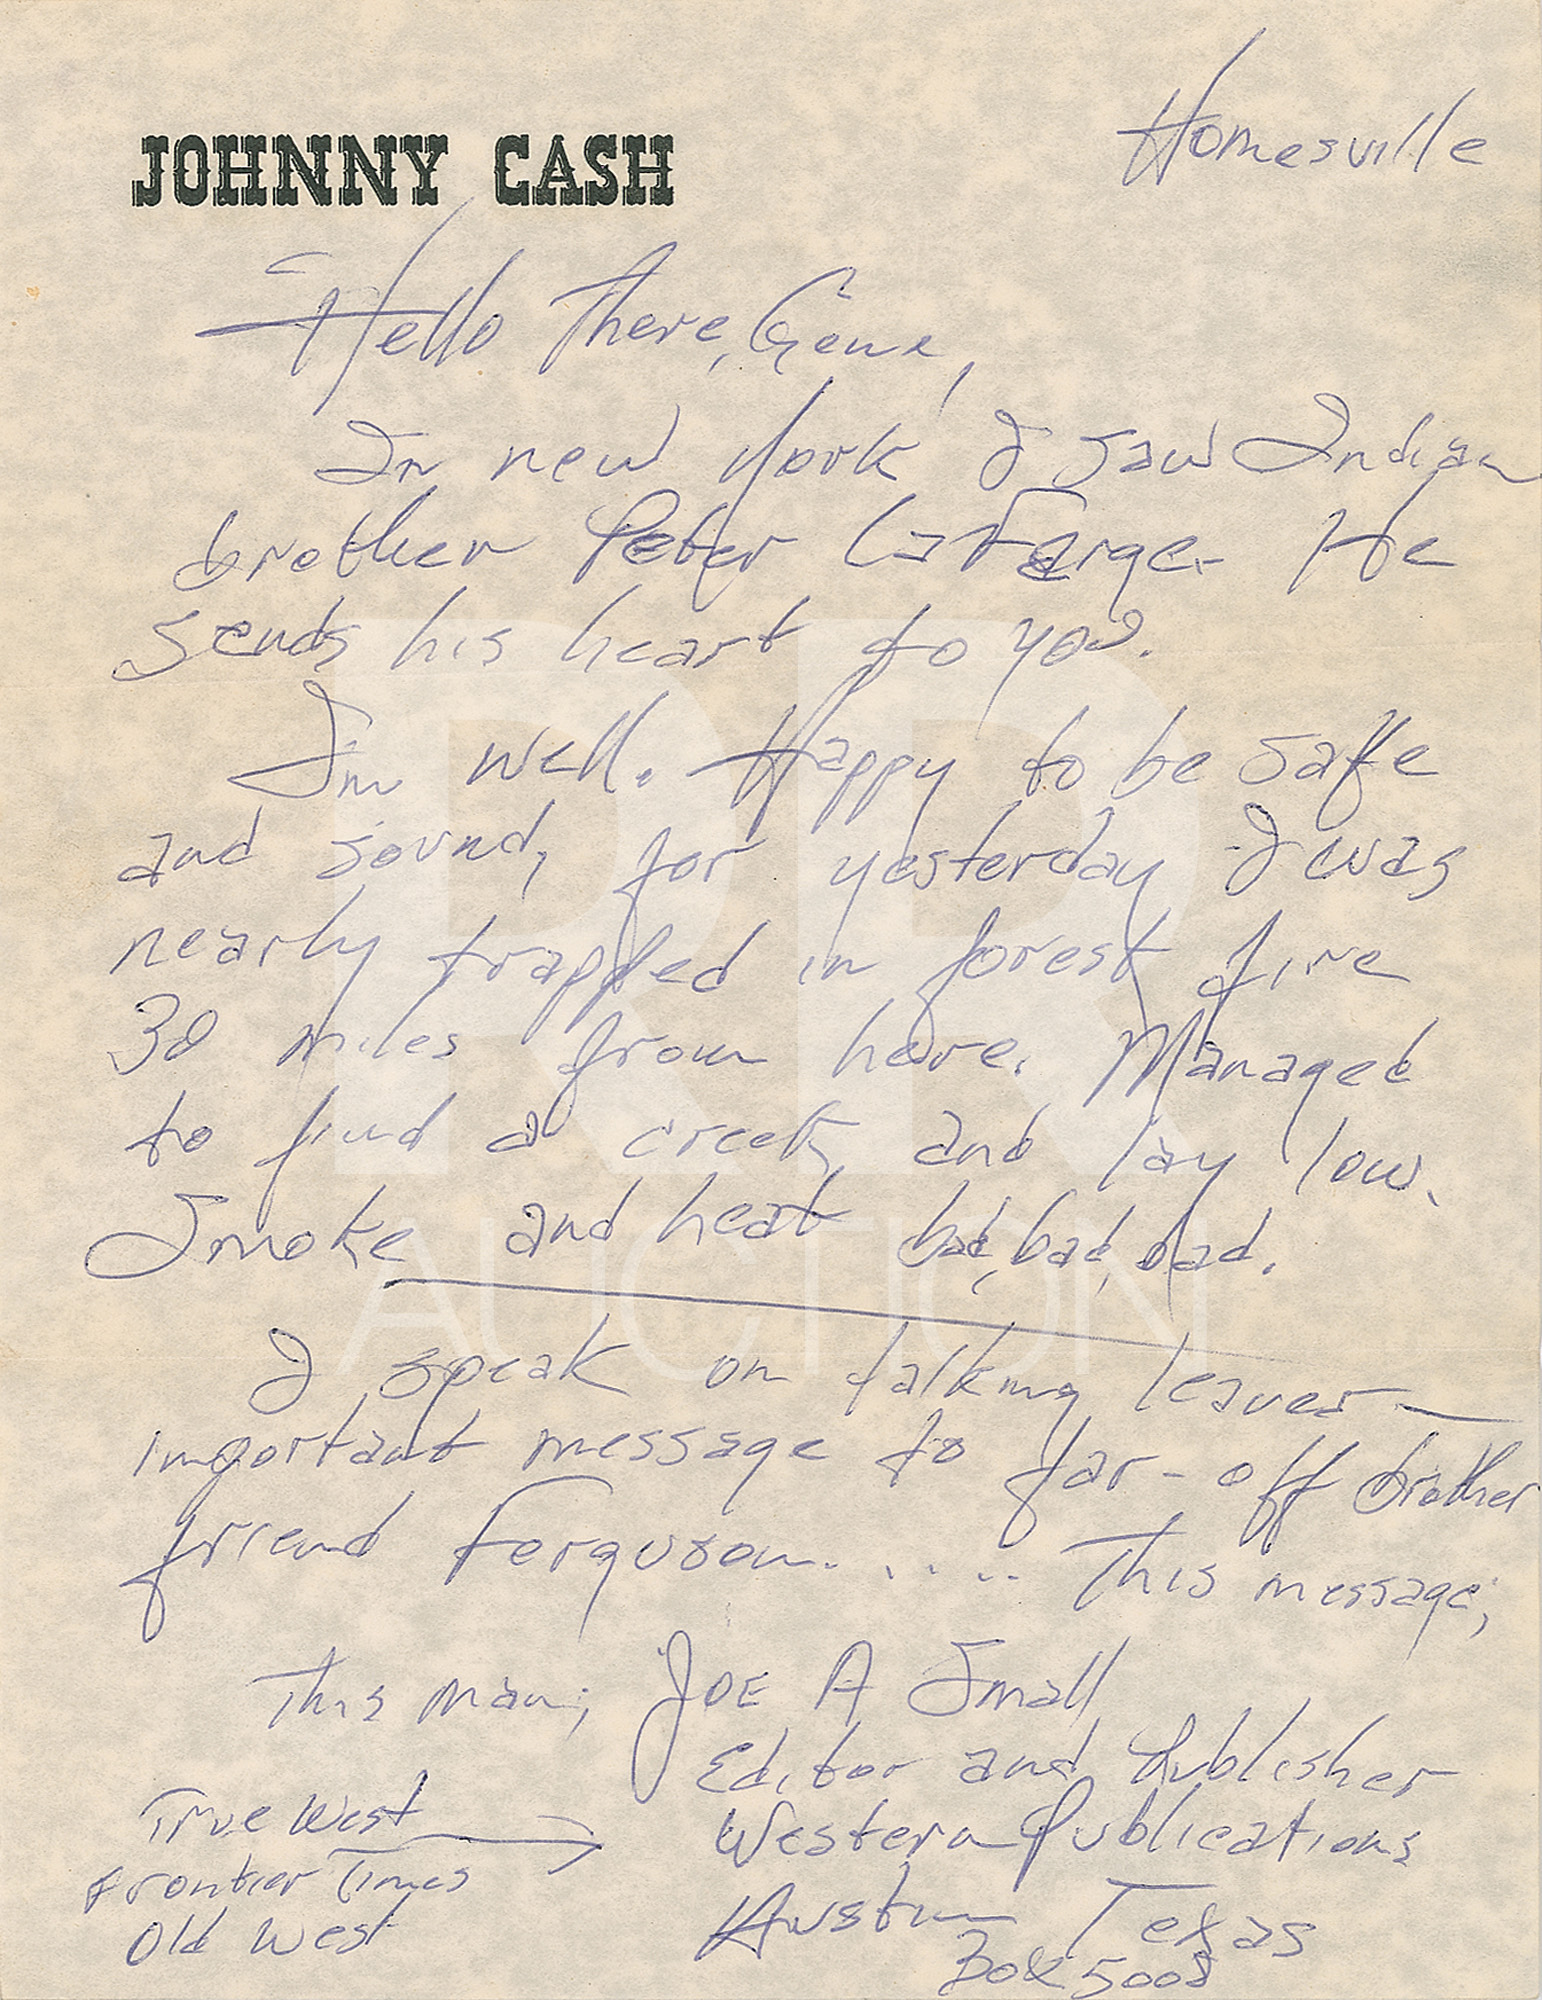 JOHNNY CASH
Homesville
Hello There, Gene,
In new York I saw Indian
brother Peter LaFarge. He
sends his heart to you.
I'm well. Happy to be safe
and sound, for yesterday I was
nearly trapped in forest fire
30 miles from here. Managed
to find a creek, and lay low.
Smoke and heat bad, bad, bad.
I speak on talking leaves—
important message to far-off brother
friend Ferguson..... This message;
This man; JOE A Small
Editor and Publisher
True West
Western Publications
Frontier Times
Old West
Austin Texas
Box 5008
RR
AUCTION